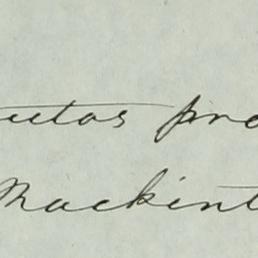 eutos pro
Mackint